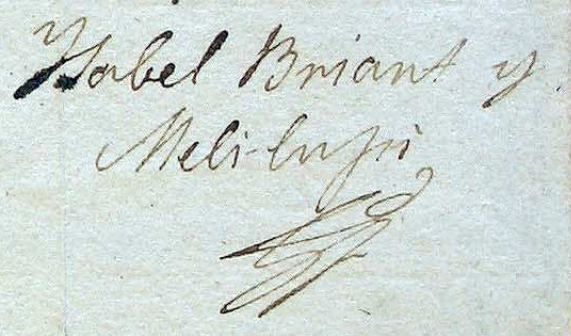 Ysabel Briant y
Meli-lupi